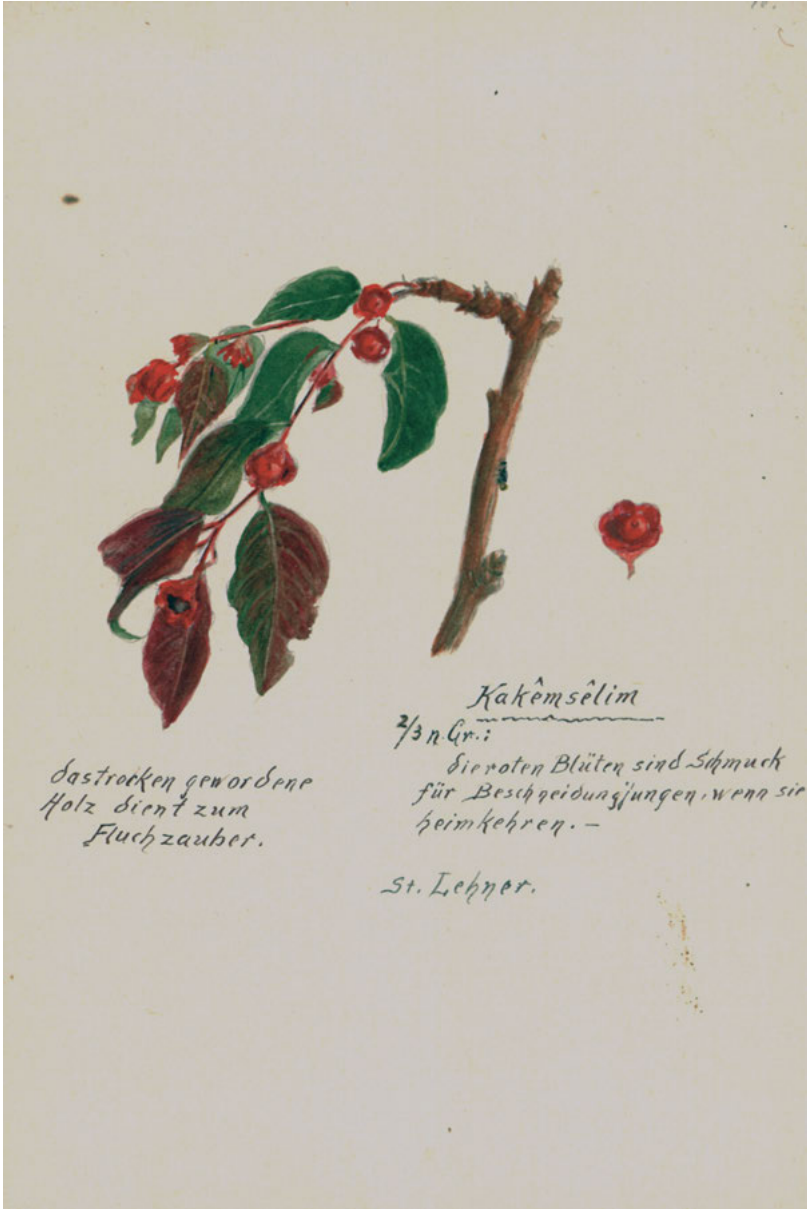 Kakêmsêlim
2/3 n. Gr.:
die roten Blüten sind Schmuck
für Beschneidungsjungen, wenn sie
heimkehren. –
das trocken gewordene
Holz dient zum
Fluchzauber.
St. Lehner.